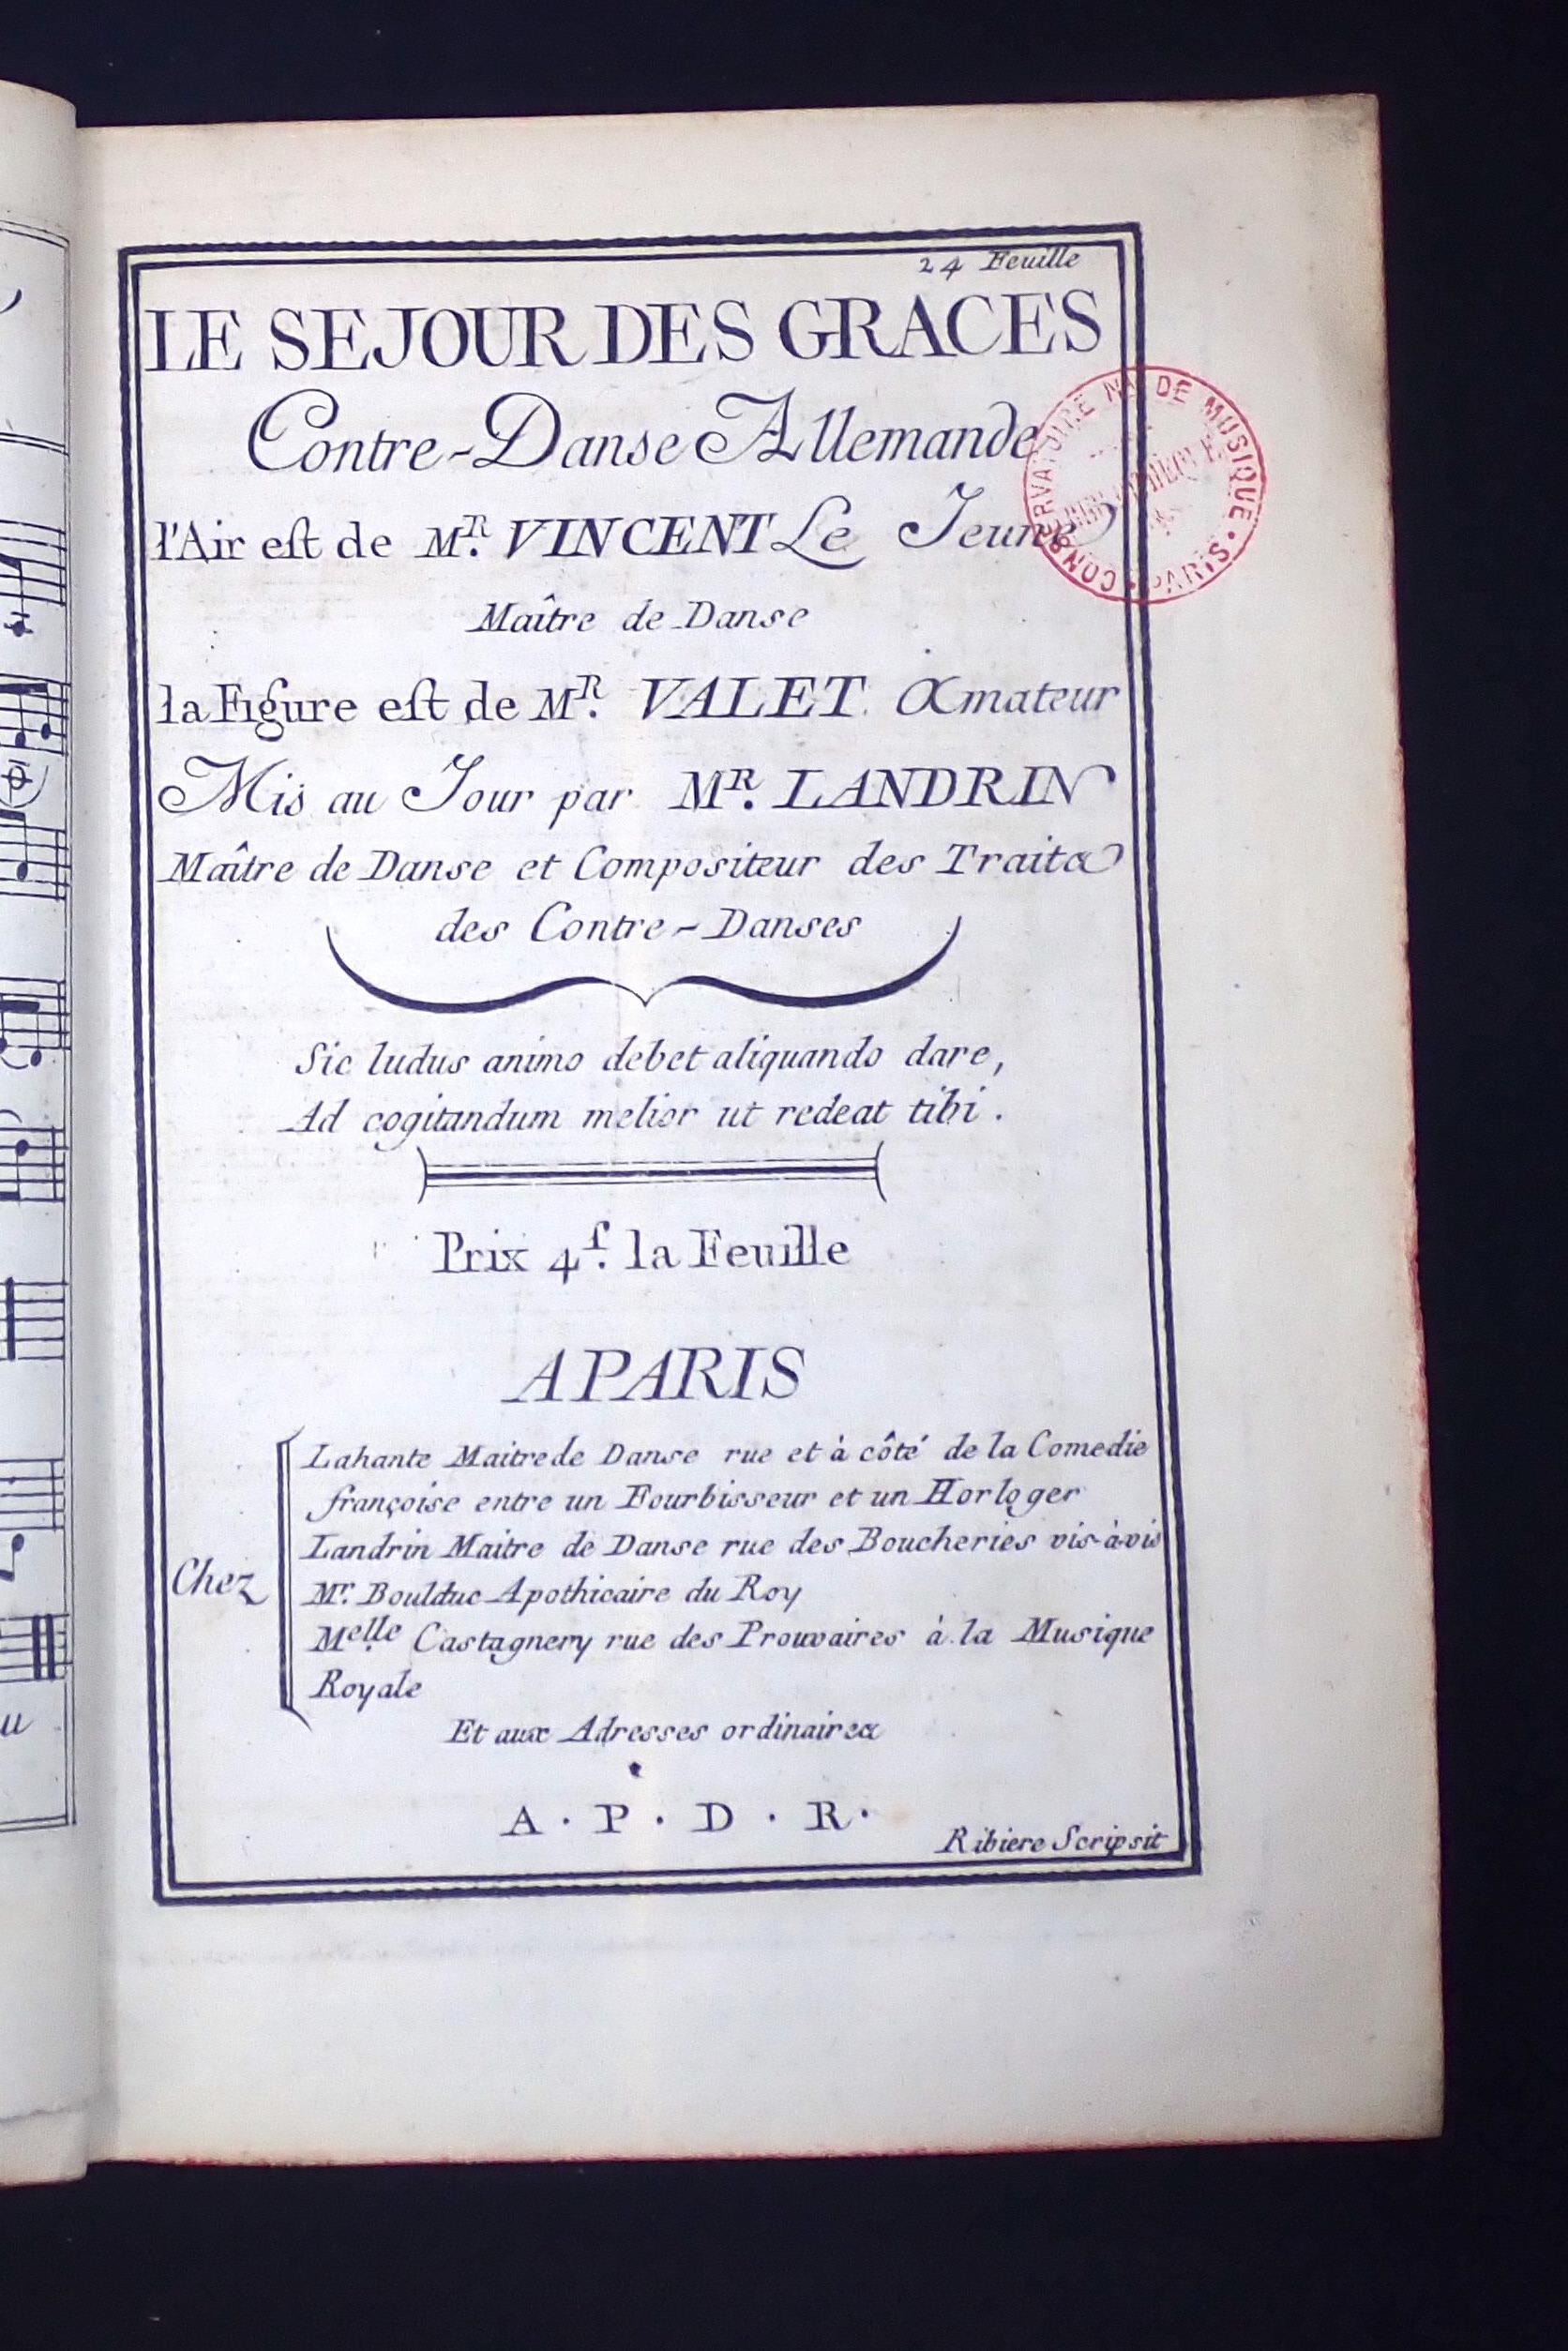 24 Feuille
LE SEJOUR DES GRACES
Contre-Danse Allemande
l'Air est de MR. VINCENT Le Jeune
Maître de Danse
la Figure est de MR. VALET Amateur
Mis au Jour par MR. LANDRIN
Maître de Danse et Compositeur des Traits
des Contre-Danses
Sic ludus animo debet aliquando dare,
Ad cogitandum melior ut redeat tibi.
Prix 4s. la Feuille
A PARIS
Chez
Lahante Maitre de Danse rue et à côté de la Comedie
françoise entre un Fourbisseur et un Horloger
Landrin Maitre de Danse rue des Boucheries vis-à-vis
Mr. Boulduc Apothicaire du Roy
Melle Castagnery rue des Prouvaires à la Musique
Royale
Et aux Adresses ordinaires
A. P. D. R.
Ribiere Scripsit
CONSERVATOIRE NAL DE MUSIQUE
BIBLIOTHÈQUE